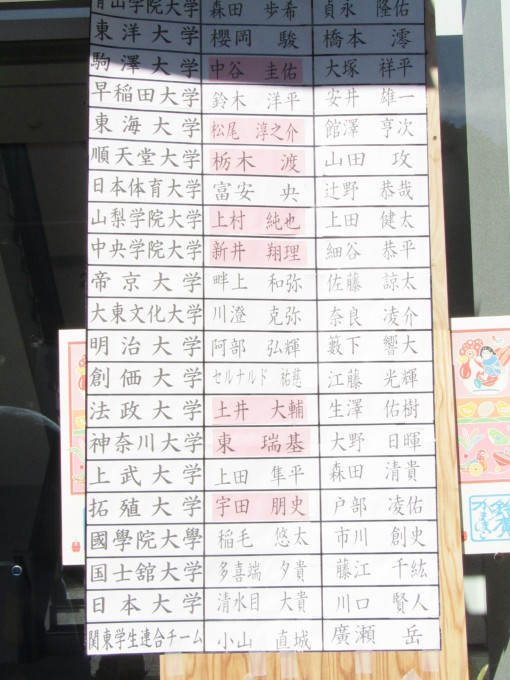 青山学院大学 森田 歩希 貞永 隆佑
東洋大学 櫻岡 駿 橋本 澪
駒澤大学 中谷 圭佑 大塚 祥平
早稲田大学 鈴木 洋平 安井 雄一
東海大学 松尾 淳之介 館澤 亨次
順天堂大学 栃木 渡 山田 攻
日本体育大学 富安 央 辻野 恭哉
山梨学院大学 上村 純也 上田 健太
中央学院大学 新井 翔理 細谷 恭平
帝京大学 畔上 和弥 佐藤 諒太
大東文化大学 川澄 克弥 奈良 凌介
明治大学 阿部 弘輝 籔下 響大
創価大学 セルナルド 祐慈 江藤 光輝
法政大学 土井 大輔 生澤 佑樹
神奈川大学 東 瑞基 大野 日暉
上武大学 上田 隼平 森田 清貴
拓殖大学 宇田 朋史 戸部 凌佑
國學院大學 稲毛 悠太 市川 創史
国士舘大学 多喜端 夕貴 藤江 千紘
日本大学 清水目 大貴 川口 賢人
関東学生連合チーム 小山 直城 廣瀬 岳